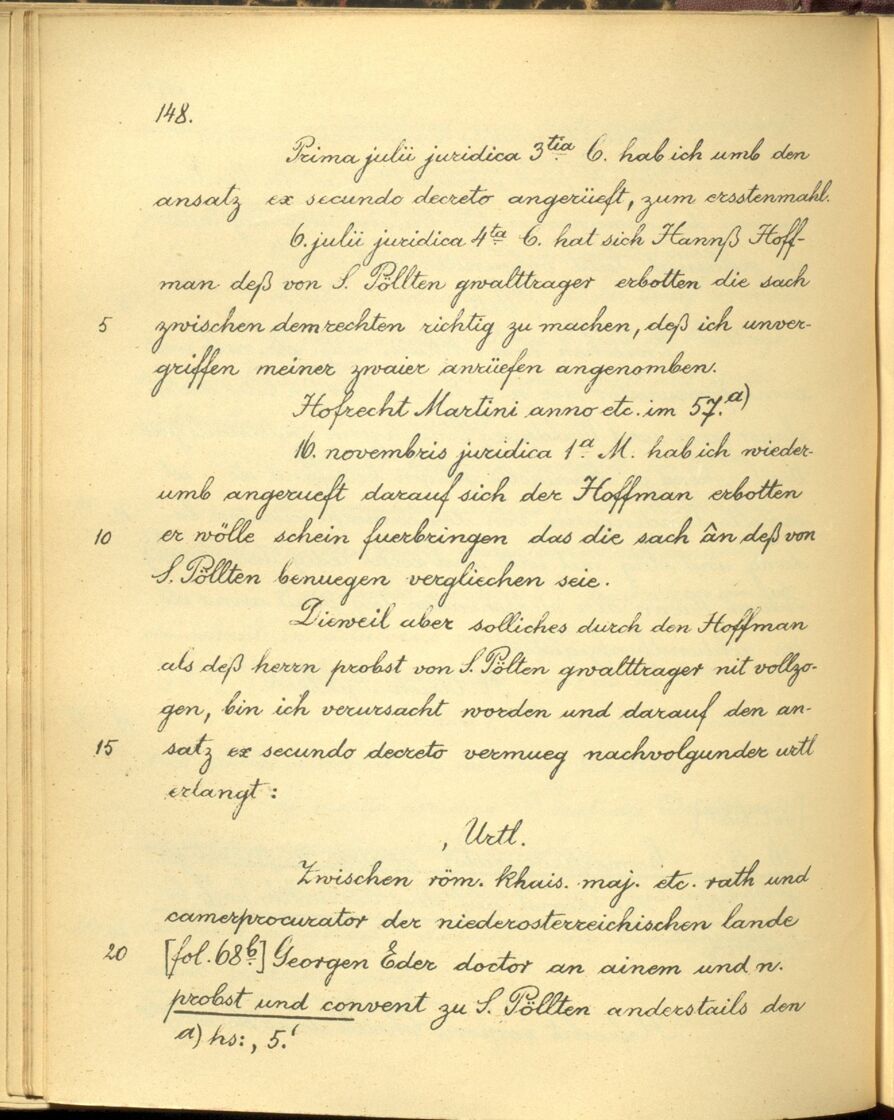 148.
Prima julii juridica 3tia 6. hab ich umb den
ansatz ex secundo decreto angerüeft, zum ersstenmahl.
6. julii juridica 4ta 6. hat sich Hannß Hoff-
man deß von S. Pöllten gwalttrager erbotten die sach
5 zwischen dem rechten richtig zu machen, deß ich unver-
griffen meiner zwaier anrüefen angenomben.
Hofrecht Martini anno etc. im 57.a)
16. novembris juridica 1a M. hab ich wieder-
umb angerueft darauf sich der Hoffman erbotten
10 er wölle schein fuerbringen das die sach ân deß von
S. Pöllten benuegen vergliechen seie.
Dieweil aber solliches durch den Hoffman
als deß herrn probst von S. Pölten gwalttrager nit vollzo-
gen, bin ich verursacht worden und darauf den an-
15 satz ex secundo decreto vermueg nachvolgunder urtl
erlangt:
, Urtl.
Zwischen röm. khais. maj. etc. rath und
camerprocurator der niederosterreichischen lande
20 [fol. 68b] Georgen Eder doctor an ainem und n.
probst und convent zu S. Pöllten anderstails den
a) hs: , 5.'